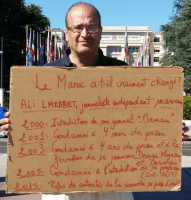 Le Maroc a-t-il vraiment changé?
ALI LMRABET, journaliste indépendant marocain
2000: Interdiction de son journal "Demain"
2001: Condamné à 4 mois de prison
2003: Condamné à 4 ans de prison et à la
fermeture de ses journaux Demain Magazine
et Doumane
2005: Condamné à l'interdiction de sa profession
2015: Refus de